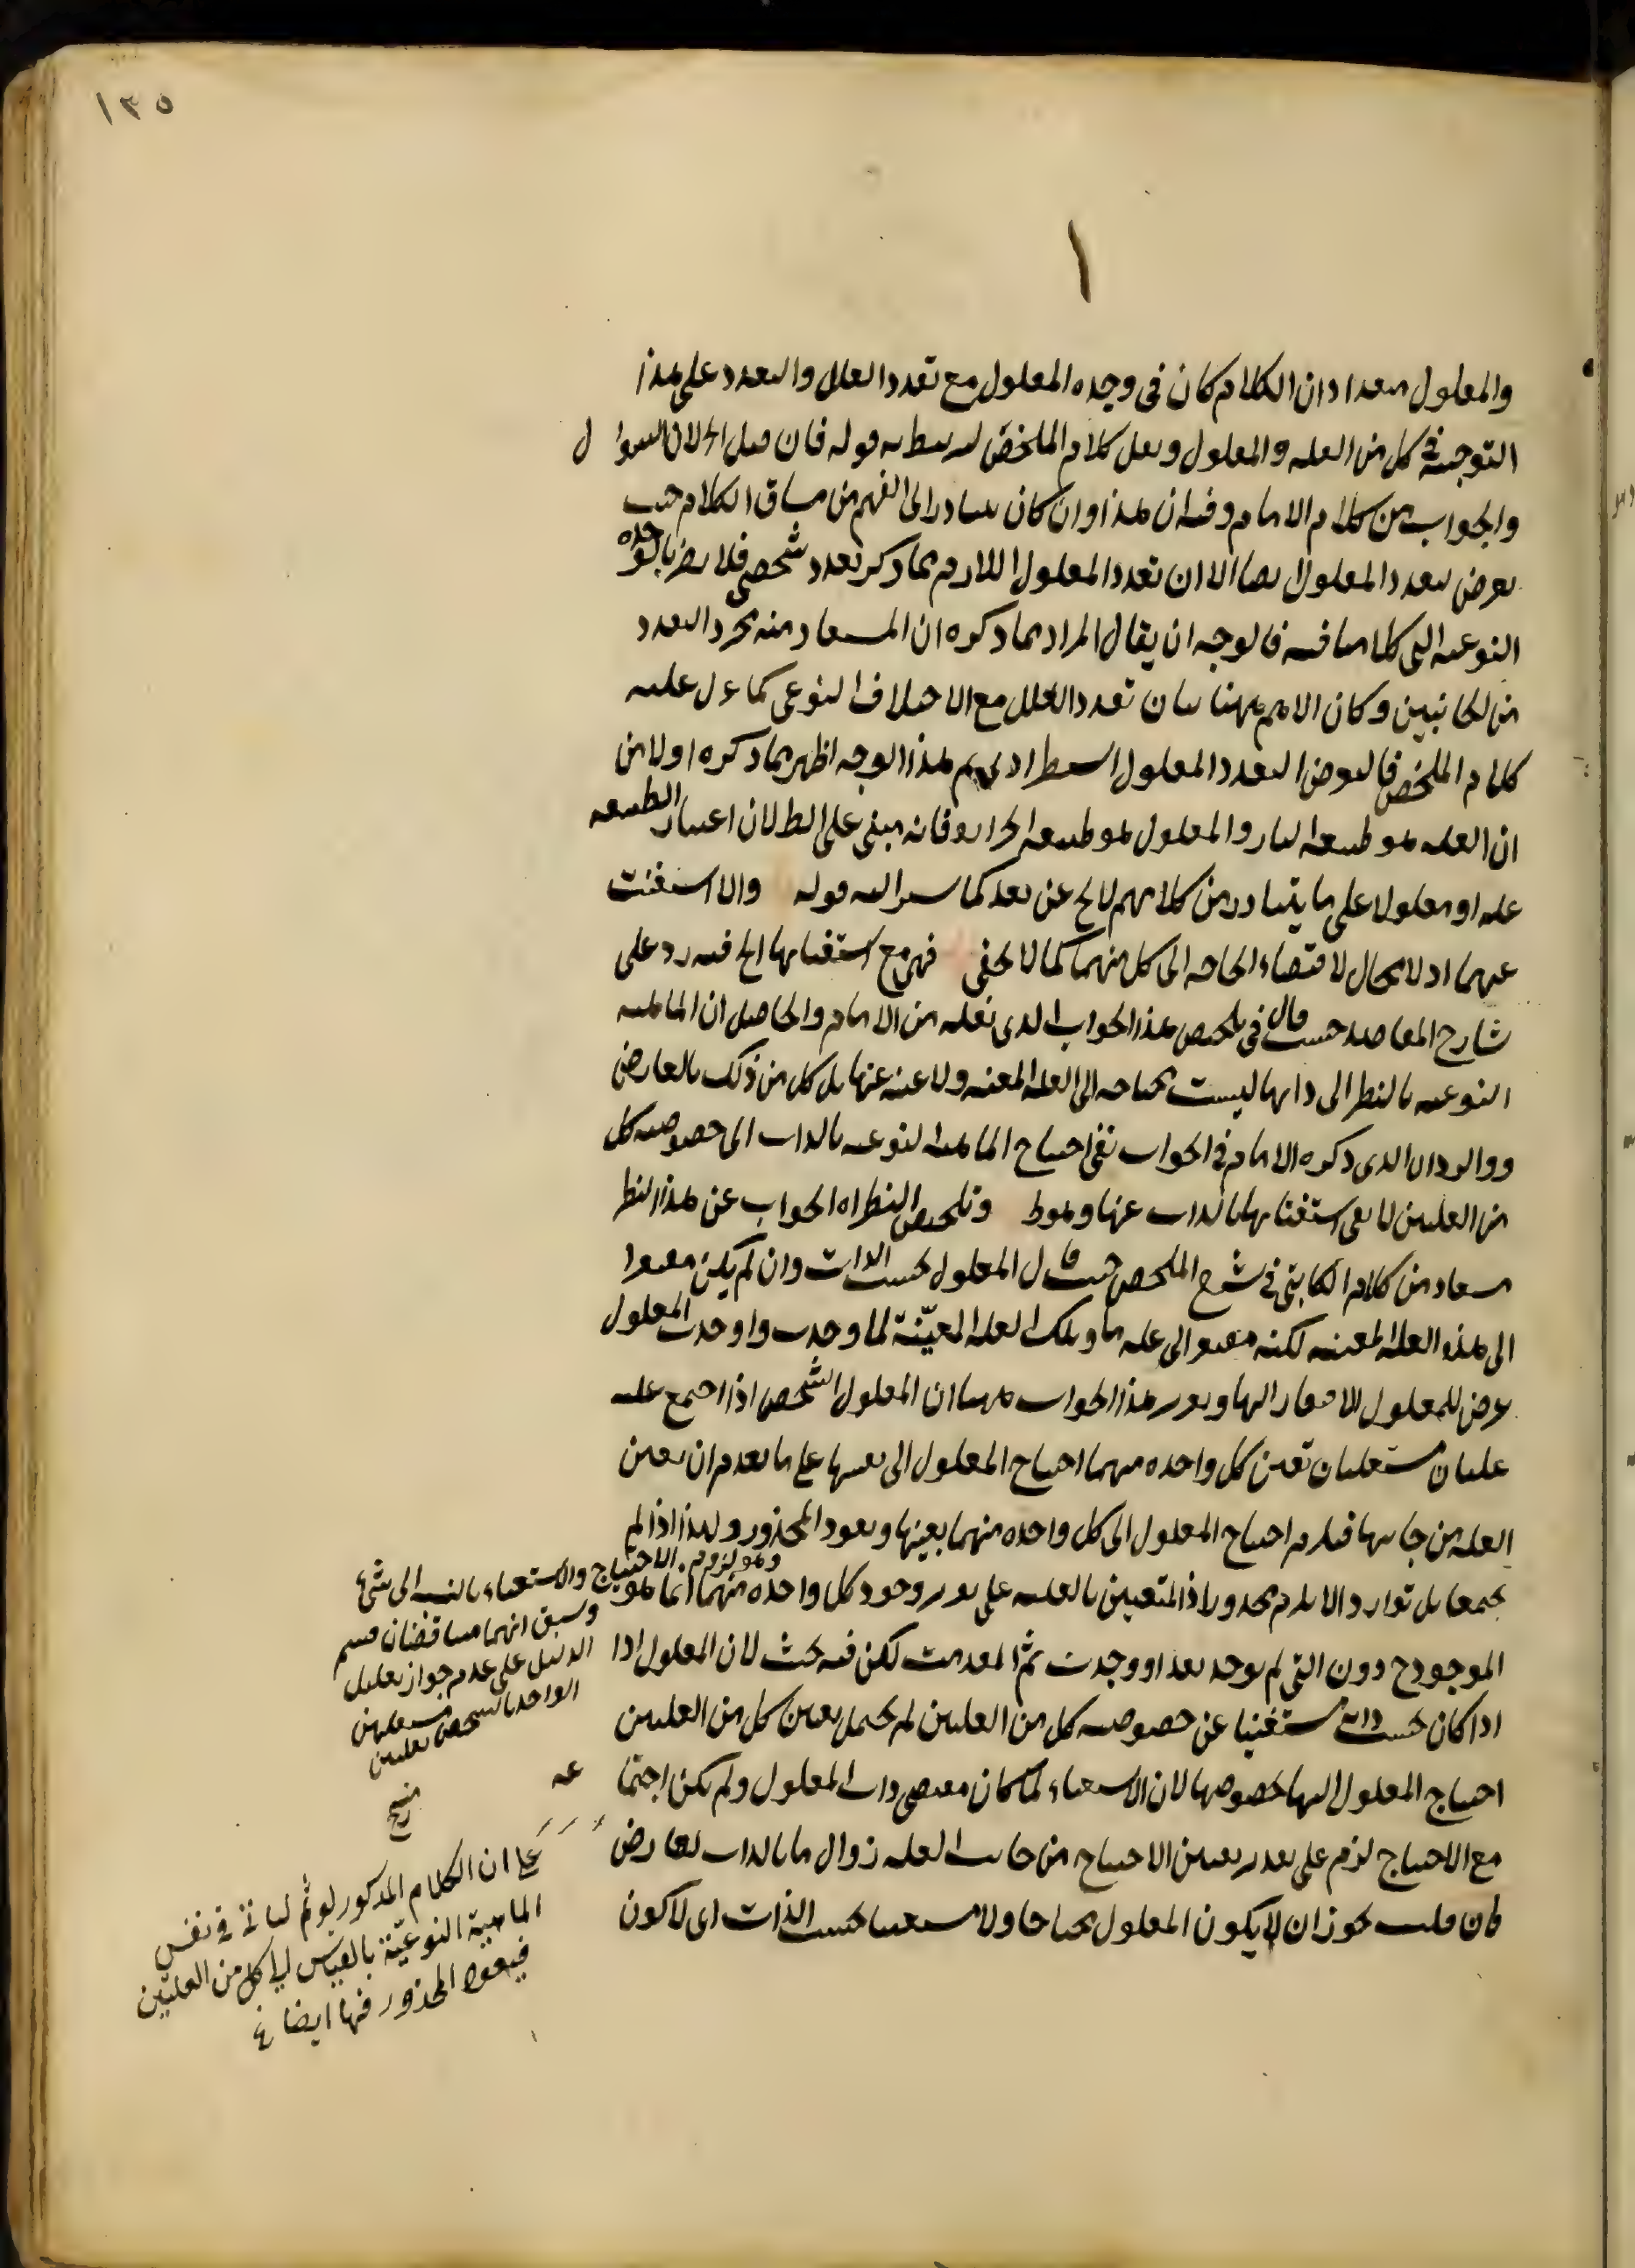 ١٣٥
١
والمعلول متعددا ان الكلام كان في وحده المعلول مع تعدد العلل والتعدد على هذا
التوجيه في كل من العله والمعلول ونقل كلام الملخص ليرتبط به قوله فان قيل الخ لان السؤال
والجواب من كلام الامام وفيه ان هذا وان كان يتبادر الى الفهم من مساق الكلام حيث
تعرض لتعدد المعلول ايضا الا ان تعدد المعلول اللازم مما ذكر تعدد شخصي فلا يضر بالوحده
النوعيه التي كلامنا فيه فالوجه ان يقال المراد بما ذكره ان المستفاد منه مجرد التعدد
من الجانبين وكان الاهم ههنا بيان تعدد العلل مع الاختلاف النوعي كما دل عليه
كلام الملخص فالتعرض لتعدد المعلول استطرادي ثم هذا الوجه اظهر مما ذكره اولا من
ان العله هو طبيعه النار والمعلول هو طبيعه الحراره فانه مبني على بطلان اعتبار الطبيعه
عله او معلولا على ما يتبادر من كلامهم لا يخ عن بعد كما سيشير اليه قوله والا استغنت
عنهما اذ لا مجال لاقتضاء الحاجه الى كل منهما كما لا يخفى فهي مع استغنائها الخ فيه رد على
شارح المقاصد حيث قال في تلخيص هذا الجواب الذي نقله من الامام والحاصل ان الماهيه
النوعيه بالنظر الى ذاتها ليست محتاجه الى العله المعينه ولا غنيه عنها بل كل من ذلك بالعارض
ووجه الرد ان الذي ذكره الامام في الجواب نفي احتياج الماهيه النوعيه بالذات الى خصوصيه كل
من العلتين لا نفي استغنائها بالذات عنها وهو ظ وتلخيص النظر اه الجواب عن هذا النظر
مستفاد من كلام الكاتبي في شرح الملخص حيث قال المعلول بحسب الذات وان لم يكن مفتقرا
الى هذه العله المعينه لكنه مفتقر الى عله ما وتلك العله المعيّنة لما وجدت واوجدت المعلول
عرض للمعلول الافتقار اليها وتقرير هذا الجواب ههنا ان المعلول الشخصي اذا اجتمع عليه
علتان مستقلتان تعين كل واحده منهما احتياج المعلول الى نفسها على ما تقدم ان تعين
العله من جانبها فيلزم احتياج المعلول الى كل واحده منهما بعينها ويعود المحذور ولهذا اذا لم
يجتمعا بل تواردا لا يلزم محذور اذ المتعين بالعليه على تقدير وجود كل واحده منهما انما هو
الموجود ح دون التي لم توجد بعد او وجدت ثم انعدمت لكن فيه بحث لان المعلول اذا
اذا كان بحسب ذاته مستغنيا عن خصوصيه كل من العلتين لم يحتمل تعين كل من العلتين
احتياج المعلول اليها بخصوصها لان الاستغناء لما كان مقتضى ذات المعلول ولم يكن اجتما عه
مع الاحتياج لزم على تقدير تعين الاحتياج من جانب العله زوال ما بالذات لعارض
فان قلت يجوز ان لا يكون المعلول محتاجا ولا مستغنيا بحسب الذات اي لا يكون
وهو لزوم الاحتياج والاستغناء بالنسبه الى شئ
وسبق انهما متناقضان فيتم
الدليل على عدم جواز تعليل
الواحد بالشخص بعلتين
مستقلتين
على ان الكلام المذكور لو تم لتاتى في نفس
الماهية النوعيّة بالقياس الى كل من العلتين
فيعود المحذور فيها ايضا